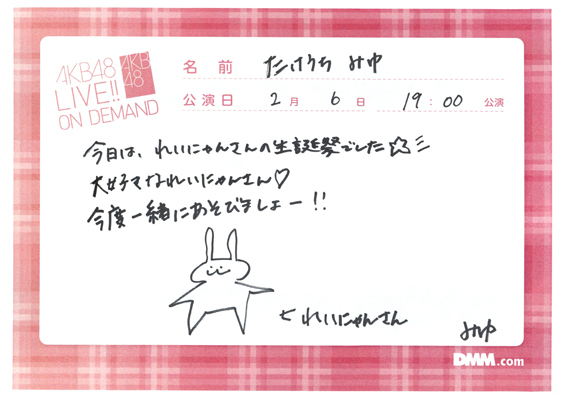 AKB48
LIVE!!
ON DEMAND
AKB
48
名 前 たけうち みゆ
公演日 2月 6日 19:00 公演
今日は、れいにゃんさんの生誕祭でした☆彡
大好きなれいにゃんさん♡
今度一緒にあそびましょー!!
れいにゃんさん
みゆ
DMM.com